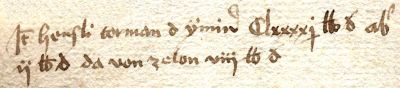 It hensli torman d ÿmmĩ Clxxxxj lb d ab
ij lb d da von zelon viij lb d